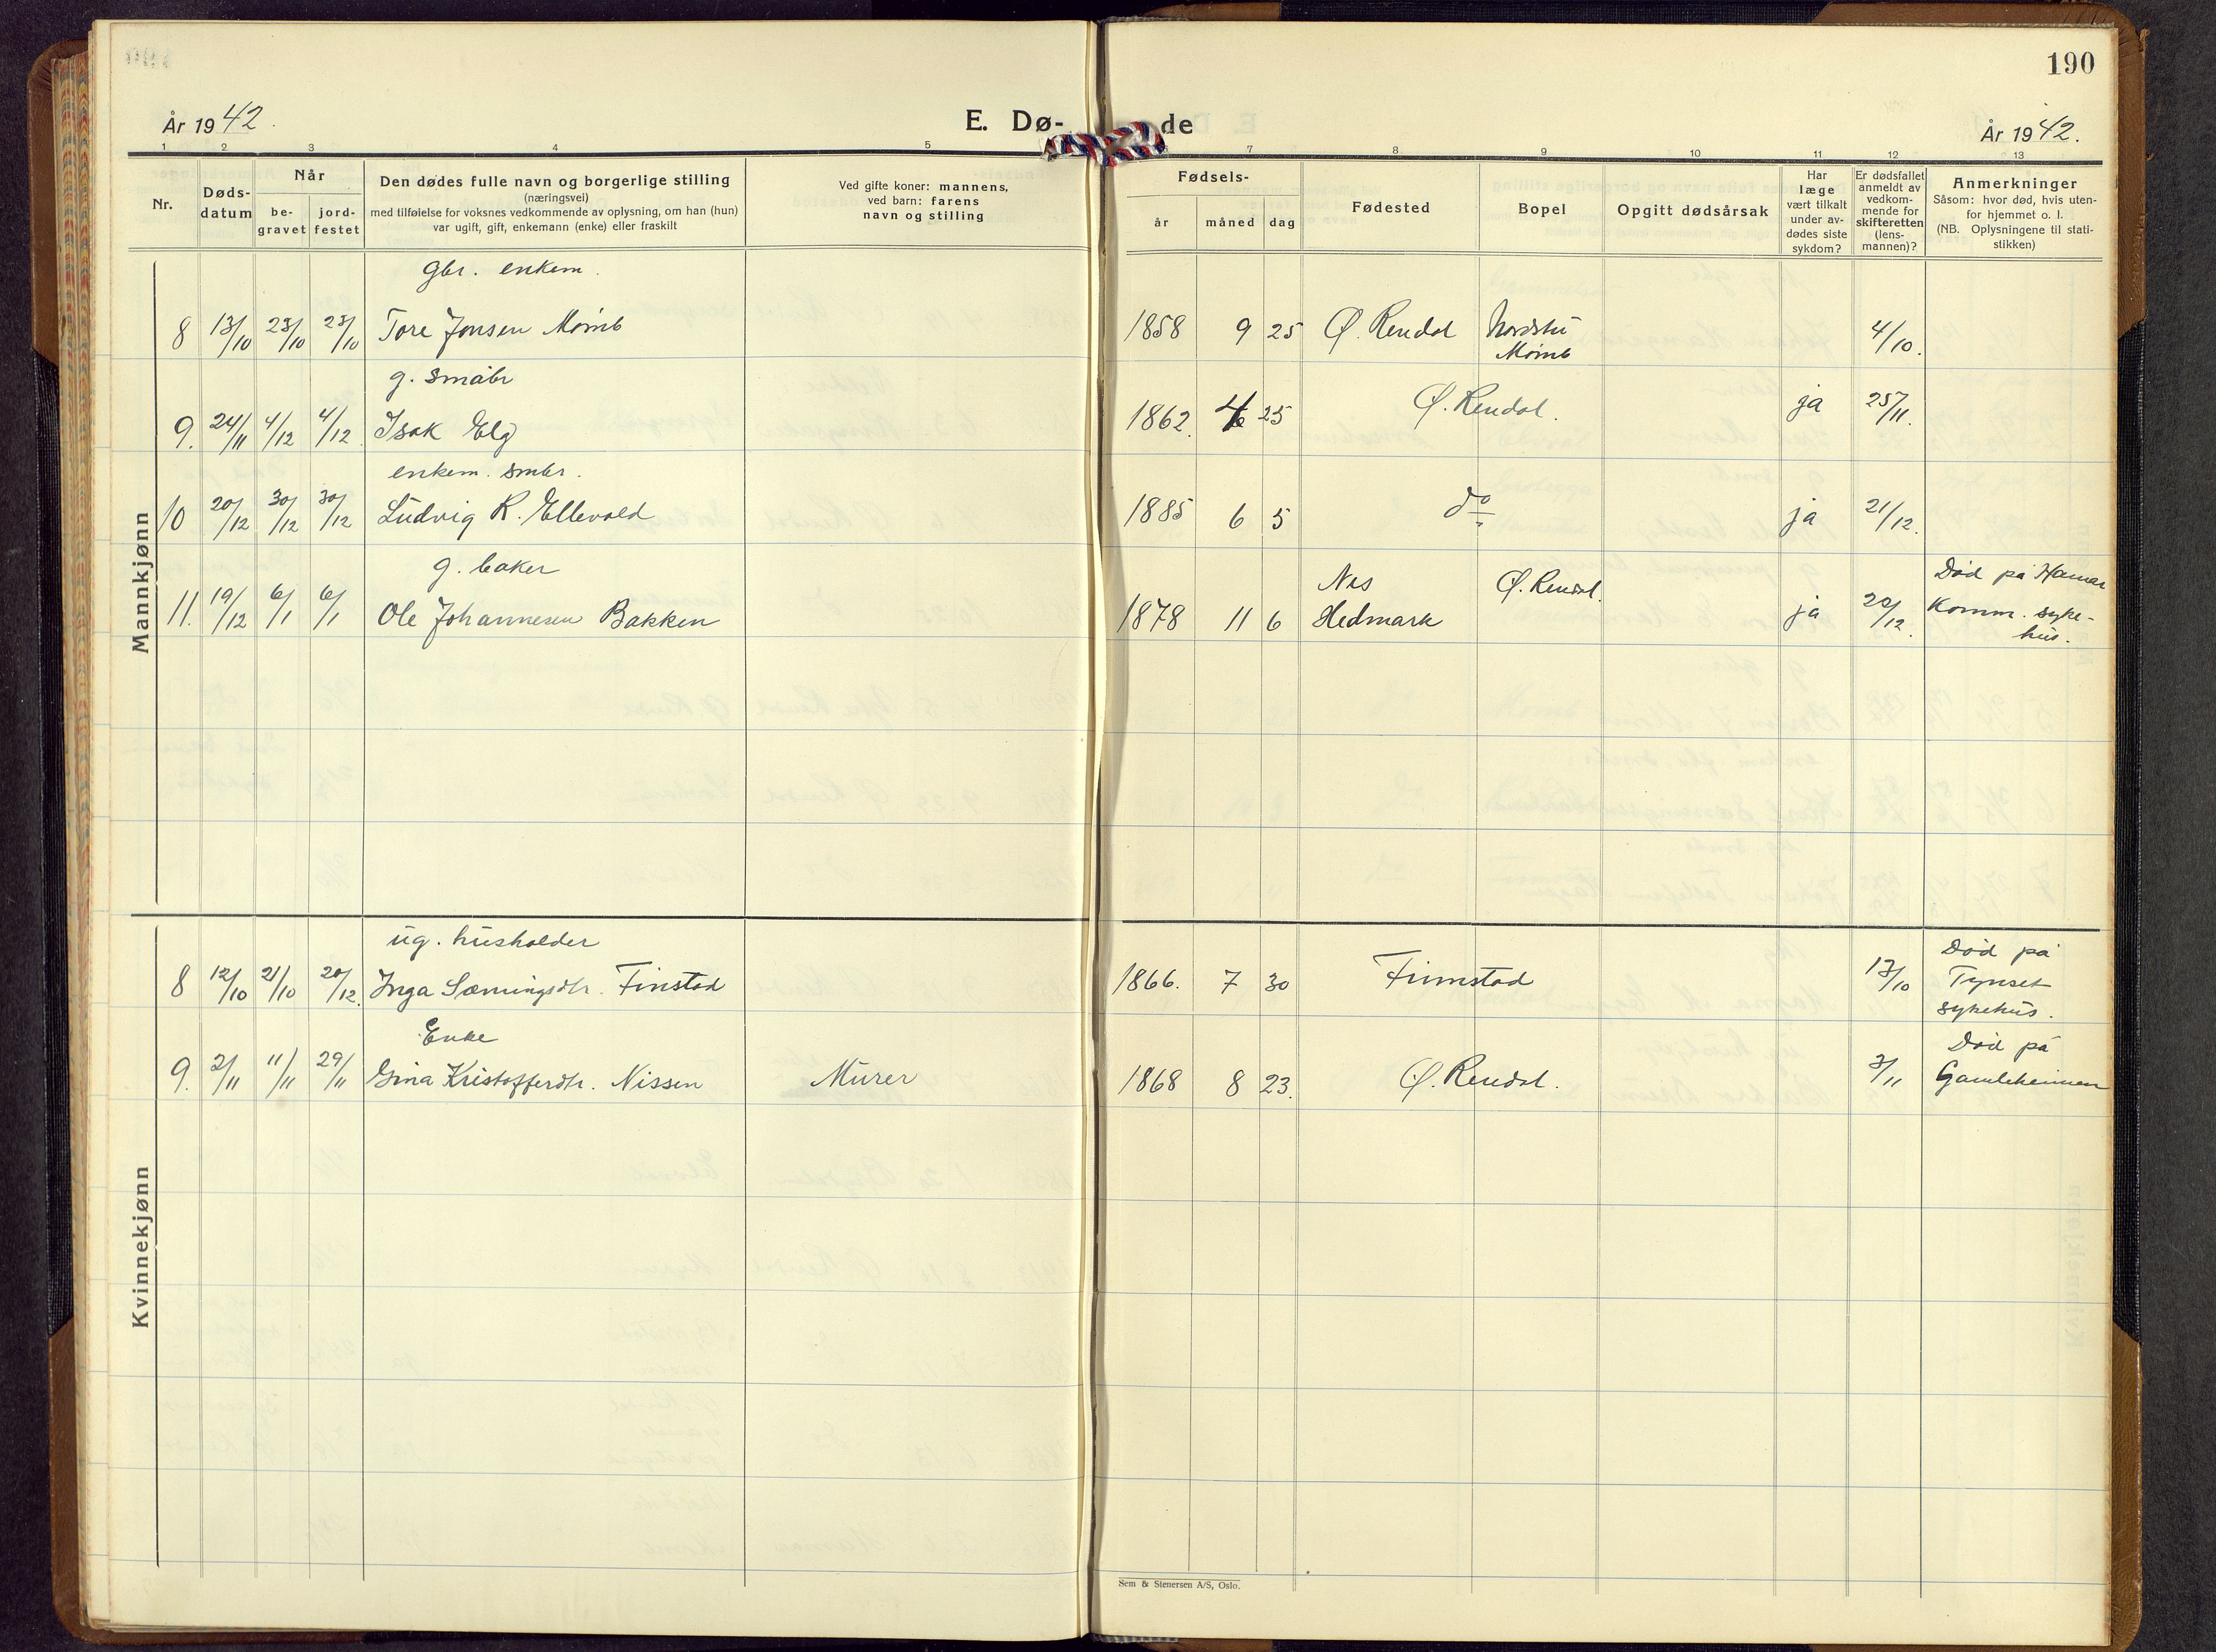 190
År 1942.
E. Dø-
de
År 1942.
1 2 3 4 5 7 8 9 10 11 12 13
Nr.
Døds-
datum
Når
be-
gravet
jord-
festet
Den dødes fulle navn og borgerlige stilling
(næringsvei)
med tilføielse for voksnes vedkommende av oplysning, om han (hun)
var ugift, gift, enkemann (enke) eller fraskilt
Ved gifte koner: mannens,
ved barn: farens
navn og stilling
Fødsels-
år måned dag
Fødested
Bopel
Opgitt dødsårsak
Har
læge
vært tilkalt
under av-
dødes siste
sykdom?
Er dødsfallet
anmeldt av
vedkom-
mende for
skifteretten
(lens-
mannen)?
Anmerkninger
Såsom: hvor død, hvis uten-
for hjemmet o. l.
(NB. Oplysningene til stati-
stikken)
Mannkjønn
gbr. enkem.
8 13/10 23/10 23/10 Tore Jonsen Momb 1858 9 25 Ø. Rendal Nordstu 4/10.
Momb
g. småbr
9. 24/11 4/12 4/12 Isak Elg 1862. 4 25 Ø. Rendal. ja 25/11.
enkem. smbr.
10 20/12 30/12 30/12 Ludvig R. Ellevold 1885 6 5 do ja 21/12.
g. baker
11. 19/12 6/1 6/1 Ole Johannesen Bakken 1878 11 6 Nes
Hedmark Ø. Rendal. ja 20/12. Død på Hamar
Komm. syke-
hus.
Kvinnekjønn
ug. husholder
8 12/10 21/10 20/12. Inga Sæmingsdtr. Finstad 1866. 7 30 Finnstad 13/10 Død på
Tynset
sykehus.
Enke
9. 2/11 11/11 29/11 Gina Kristofferdtr. Nissen Murer 1868 8 23. Ø. Rendal. 3/11 Død på
Gamleheimen
Sem & Stenersen A/S, Oslo.